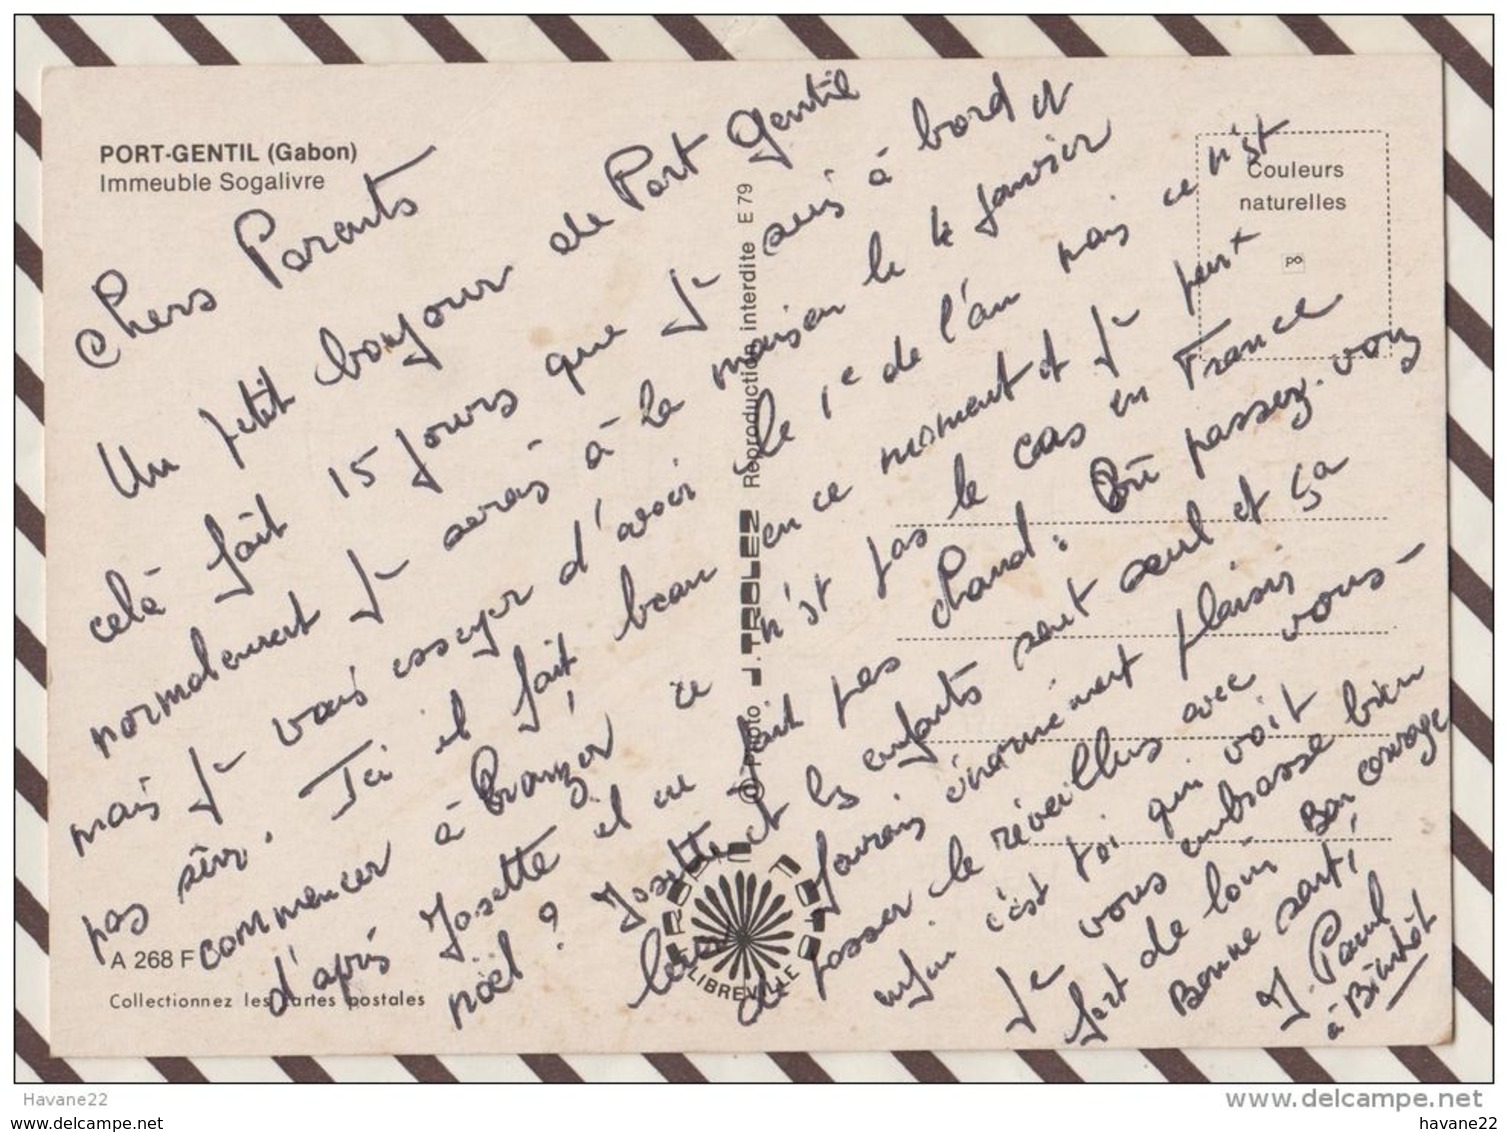 PORT-GENTIL (Gabon)
Immeuble Sogalivre
Couleurs
naturelles
PO
Chers Parents
Un petit bonjour de Port Gentil
celà fait 15 jours que je suis à bord et
normalement je serais à la maison le 4 janvier
mais je vais essayer d'avoir le 1e de l'an mais ce n'est
pas sûr. Ici il fait beau en ce moment et je peux
commencer à bronzer ce n'est pas le cas en France
d'après Josette il ne fait pas chaud. Où passez-vous
noël ? Josette et les enfants sont seul et ça
J'aurais énormément plaisir
de passer le réveillus avec vous-
enfin c'est toi qui voit
Je vous embrasse bien
fort de loin Bon courage
Bonne santé,
J. Paul
à Bientôt
© Photo J. TROLEZ Reproduction interdite E 79
LIBREVILLE
A 268 F
Collectionnez les cartes postales
Havane22
www.delcampe.net
www.delcampe.net
havane22